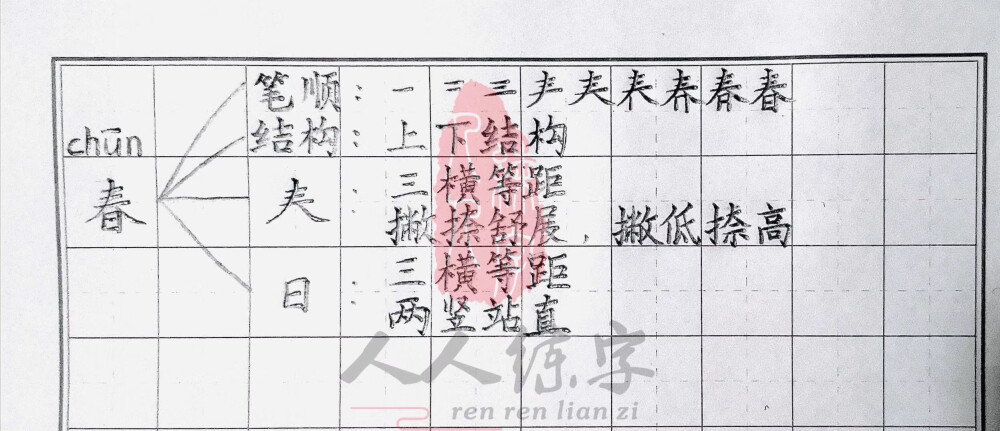 笔顺：一 二 三 𡗗
结构：上下结构
chūn
春
三横等距
撇捺舒展，撇低捺高
日：三横等距
两竖站直
人人练字
ren ren lian zi